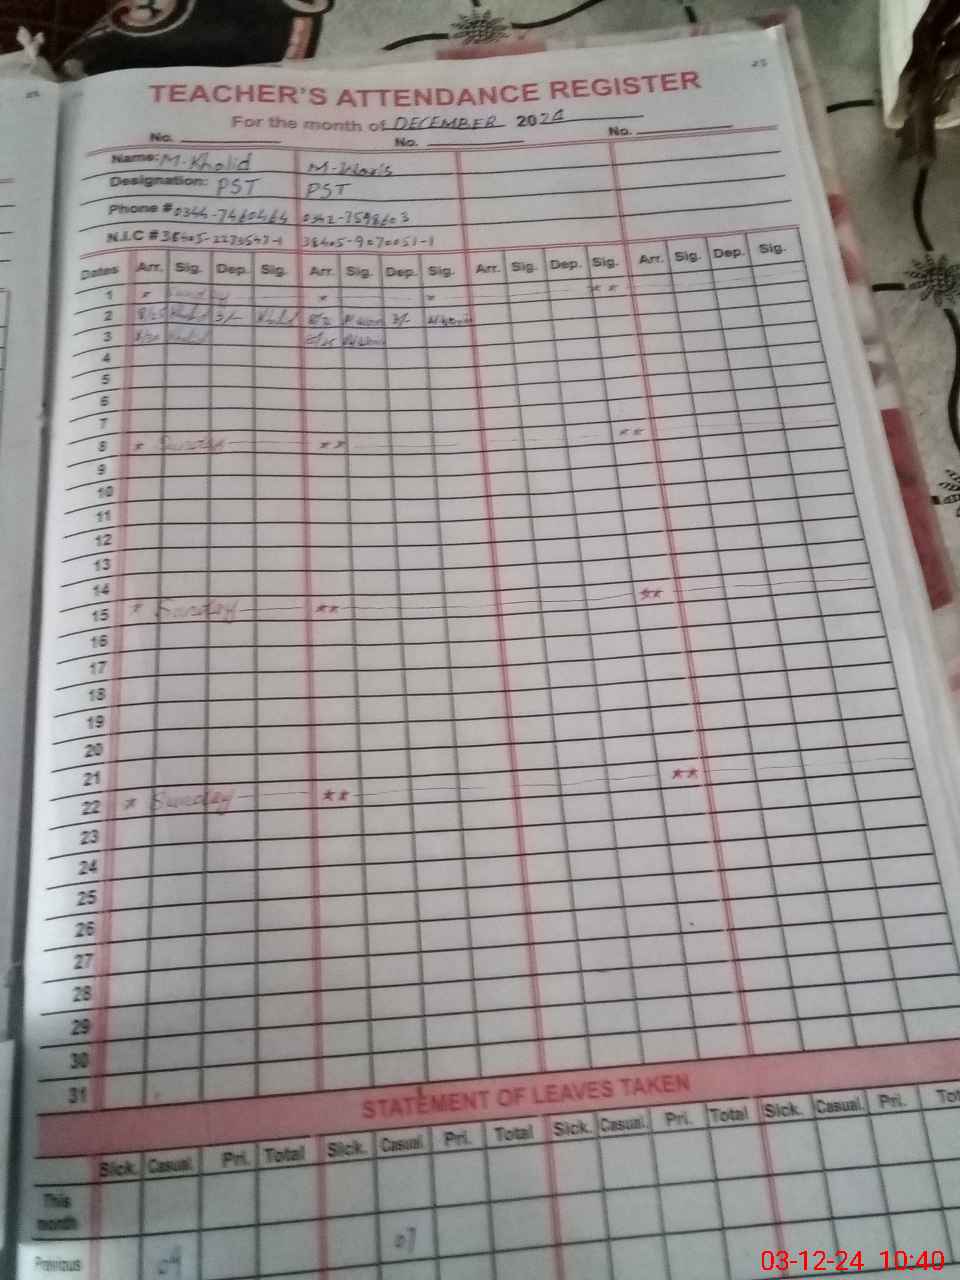 25
TEACHER'S ATTENDANCE REGISTER
For the month of DECEMBER 2024
No. No. No.
Name: M-Khalid M-Waris
Designation: PST PST
Phone # 0344-7460464 0342-7598603
N.I.C # 38405-2273547-1 38405-9070051-1
Dates Arr. Sig. Dep. Sig. Arr. Sig. Dep. Sig. Arr. Sig. Dep. Sig. Arr. Sig. Dep. Sig.
1 * Sunday * * **
2 Khalid 3/- Khalid 3/-
3 Khalid
4
5
6
7
8 * Sunday ** **
9
10
11
12
13
14
15 * Sunday ** **
16
17
18
19
20
21
22 * Sunday ** **
23
24
25
26
27
28
29
30
31
STATEMENT OF LEAVES TAKEN
Sick. Casual. Pri. Total Sick. Casual. Pri. Total Sick. Casual. Pri. Total Sick. Casual. Pri. Tot
This month
Previous 04 07
03-12-24 10:40